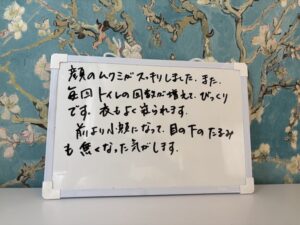 顔のムクミがスッキリしました。また、
毎回トイレの回数が増えて、びっくり
です。夜もよく寝られます。
前より小顔になって、目の下のたるみ
も無くなった気がします。